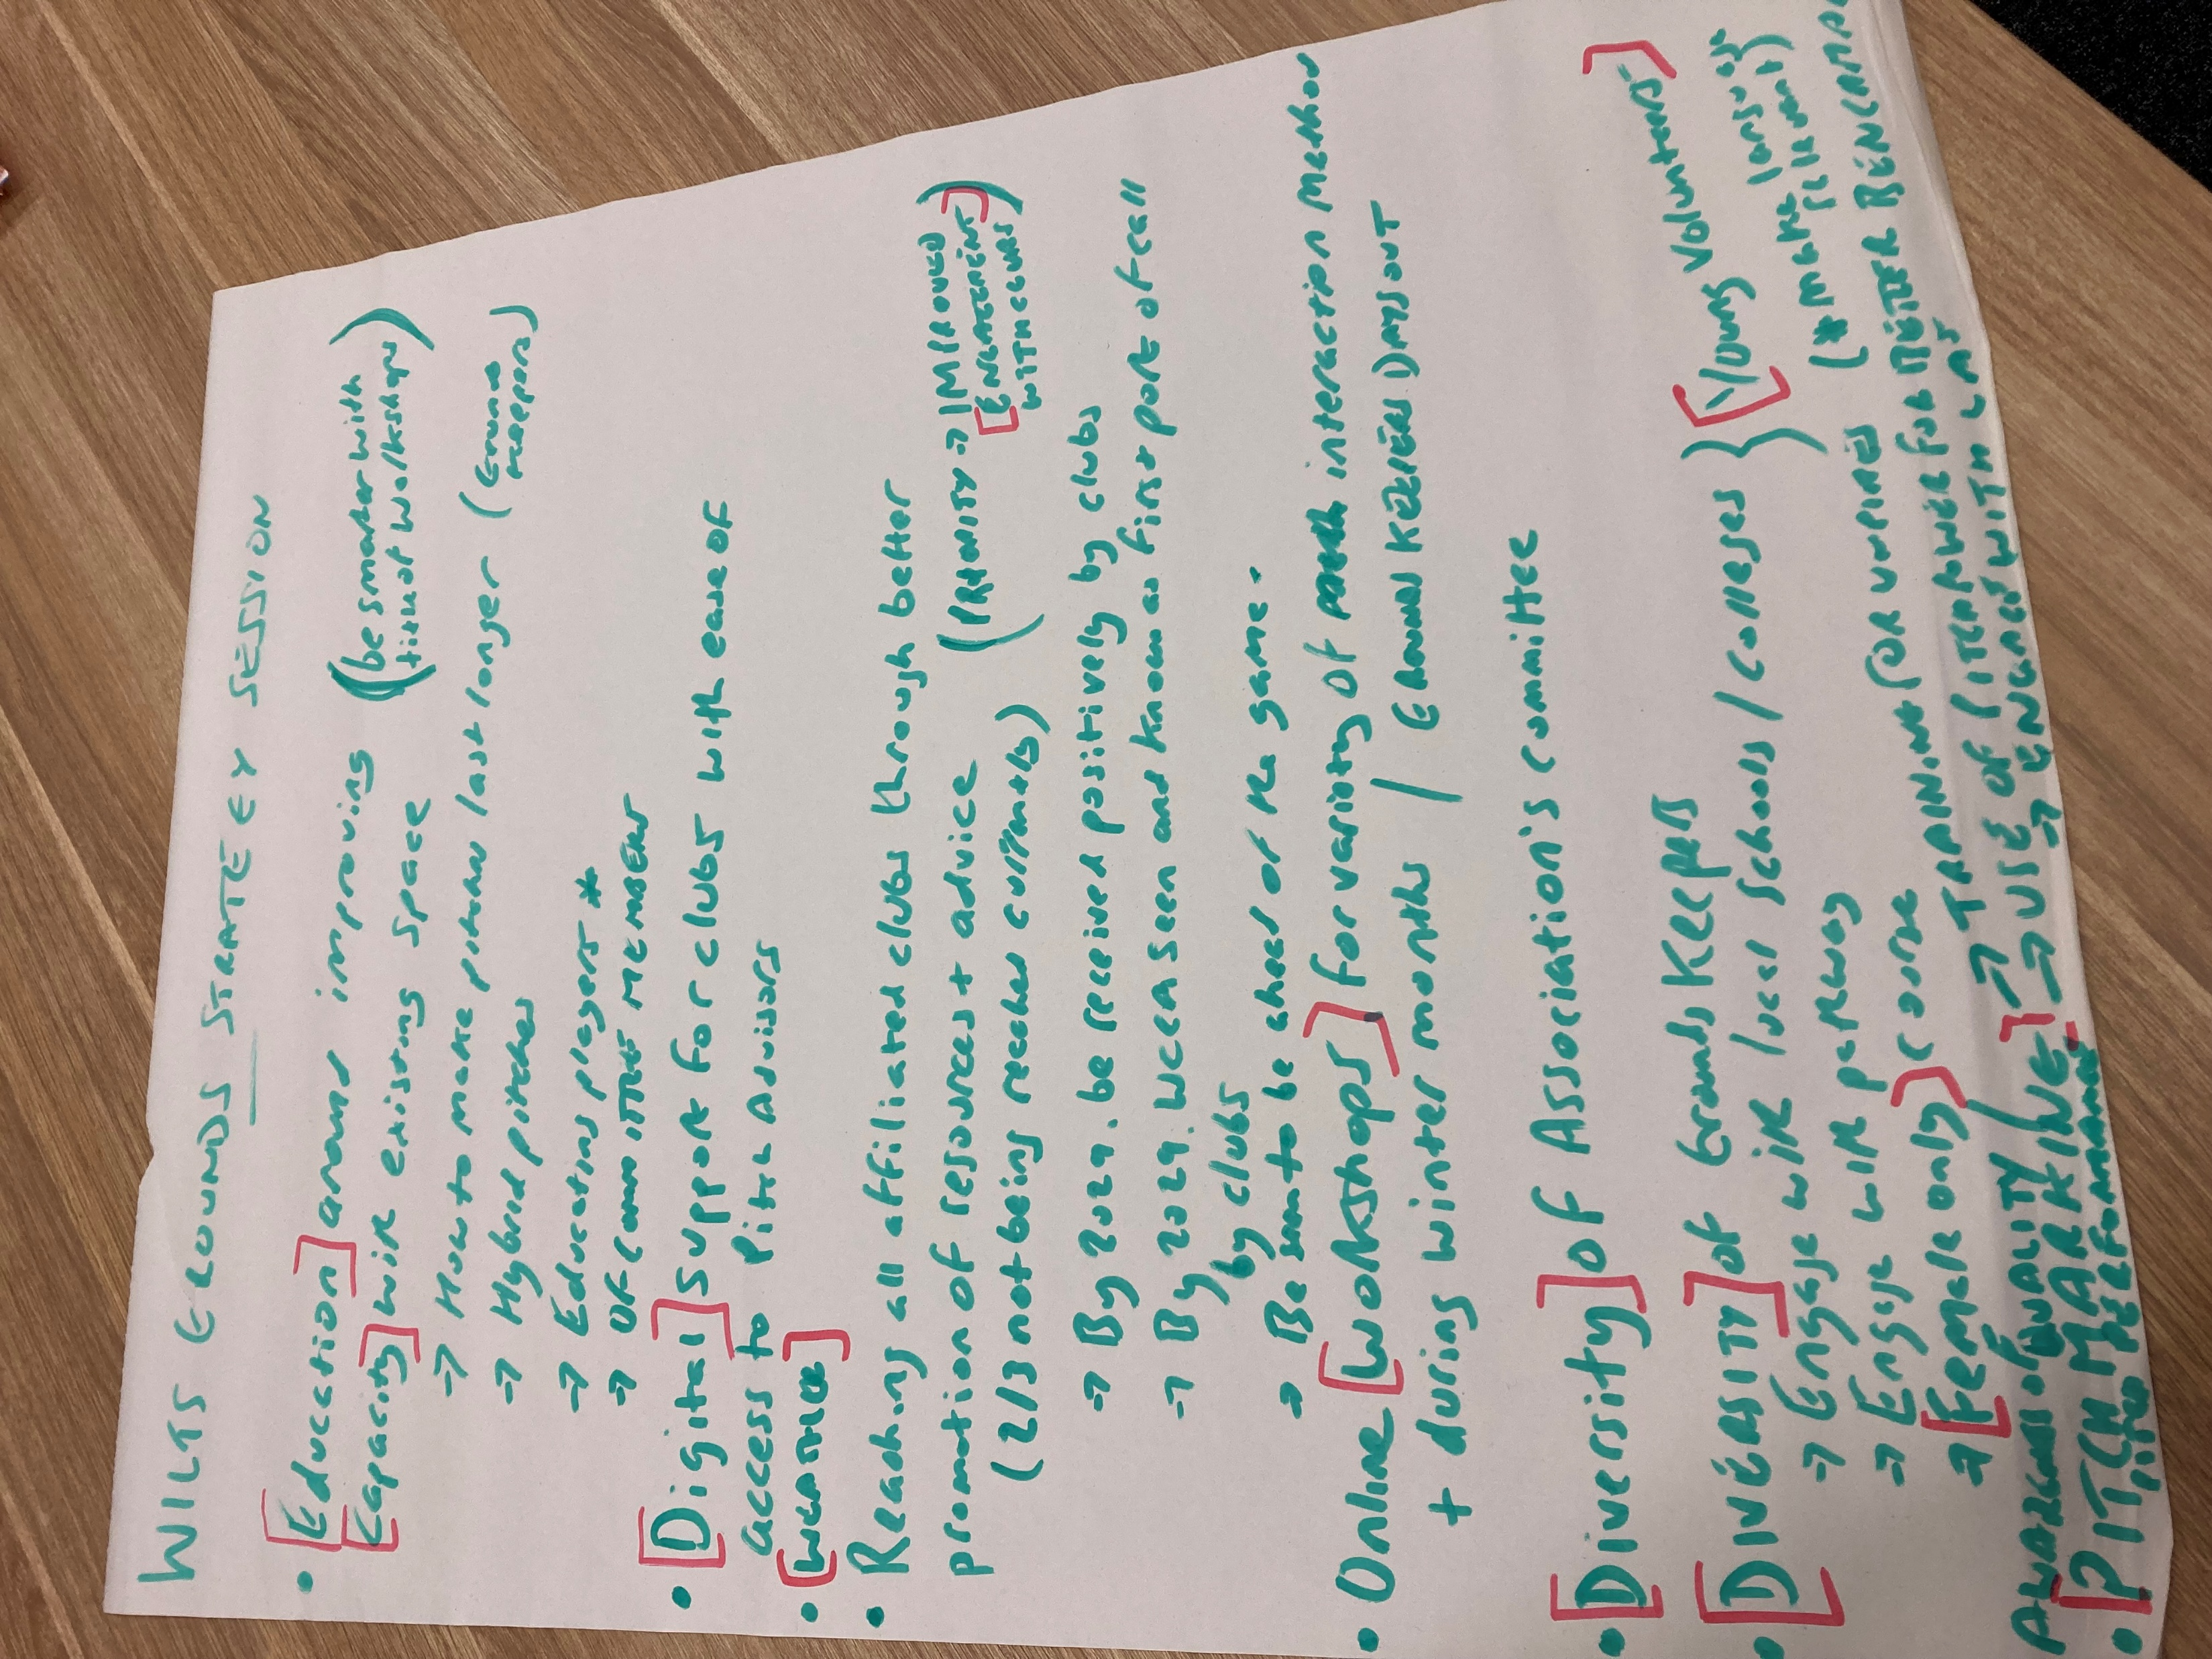 WILTS GROUNDS STRATEGY SESSION
• [Education] around improving (be smarter with
[Capacity] with existing space timing of workshops)
→ How to make pitches last longer (Grounds keepers)
→ Hybrid pitches
→ Educating players *
→ OF COMMITTEE MEMBERS
• [Digital] support for clubs with ease of
access to Pitch Advisors
• [WEATHER]
• Reaching all affiliated clubs through better
promotion of resources + advice (PRIORITY → IMPROVED
(2/3 not being reached currently) [ENGAGEMENT] WITH CLUBS)
→ By 2029. be received positively by clubs
→ By 2029. WCGA seen and known as first port of call
by clubs
→ Be seen to be ahead of the game.
• Online [WORKSHOPS] for variety of interaction method
+ during winter months / GROUNDKEEPERS DAYS OUT
• [Diversity] of Association's committee
• [DIVERSITY] of Grounds Keepers
→ Engage with local schools / colleges } [Young Volunteers]
→ Engage with pathway (* make language relevant)
→ [Female only] course
AWARENESS OF QUALITY
• [PITCH MARKING] → TRAINING FOR UMPIRES
PITCH PERFORMANCE
→ USE OF PITCHPOWER FOR BETTER
→ ENGAGE WITH